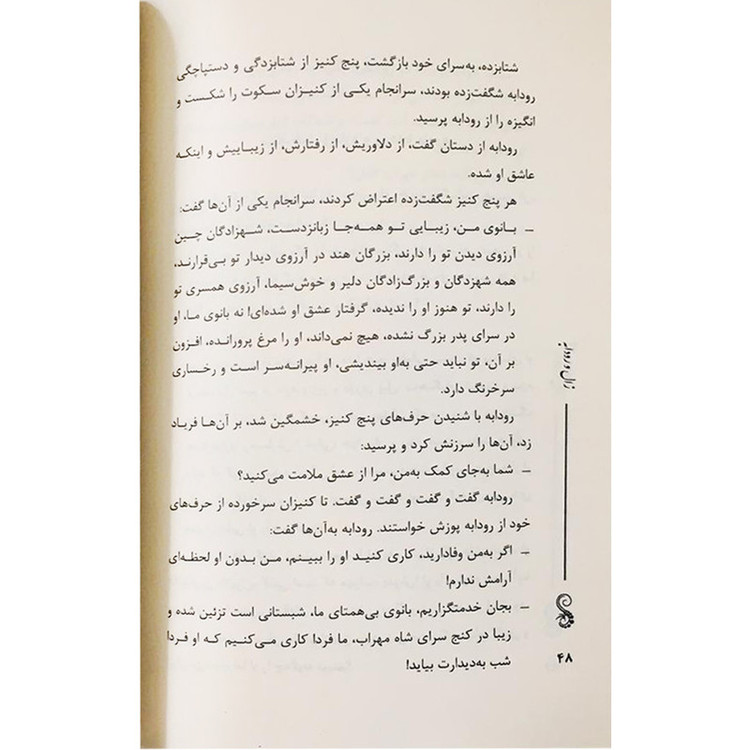 شتابزده، به‌سرای خود بازگشت، پنج کنیز از شتابزدگی و دستپاچگی
رودابه شگفت‌زده بودند، سرانجام یکی از کنیزان سکوت را شکست و
انگیزه را از رودابه پرسید.
رودابه از دستان گفت، از دلاوریش، از رفتارش، از زیباییش و اینکه
عاشق او شده.
هر پنج کنیز شگفت‌زده اعتراض کردند، سرانجام یکی از آن‌ها گفت:
ـ بانوی من، زیبایی تو همه‌جا زبانزدست، شهزادگان چین
آرزوی دیدن تو را دارند، بزرگان هند در آرزوی دیدار تو بی‌قرارند،
همه شهزدگان و بزرگ‌زادگان دلیر و خوش‌سیما، آرزوی همسری تو
را دارند، تو هنوز او را ندیده، گرفتار عشق او شده‌ای! نه بانوی ما، او
در سرای پدر بزرگ نشده، هیچ نمی‌داند، او را مرغ پرورانده، افزون
بر آن، تو نباید حتی به‌او بیندیشی، او پیرانه‌سر است و رخساری
سرخرنگ دارد.
رودابه با شنیدن حرف‌های پنج کنیز، خشمگین شد، بر آن‌ها فریاد
زد، آن‌ها را سرزنش کرد و پرسید:
ـ شما به‌جای کمک به‌من، مرا از عشق ملامت می‌کنید؟
رودابه گفت و گفت و گفت و گفت. تا کنیزان سرخورده از حرف‌های
خود از رودابه پوزش خواستند. رودابه به‌آن‌ها گفت:
ـ اگر به‌من وفادارید، کاری کنید او را ببینم، من بدون او لحظه‌ای
آرامش ندارم!
ـ بجان خدمتگزاریم، بانوی بی‌همتای ما، شبستانی است تزئین شده و
زیبا در کنج سرای شاه مهراب، ما فردا کاری می‌کنیم که او فردا
شب به‌دیدارت بیاید!
زال و رودابه
۴۸